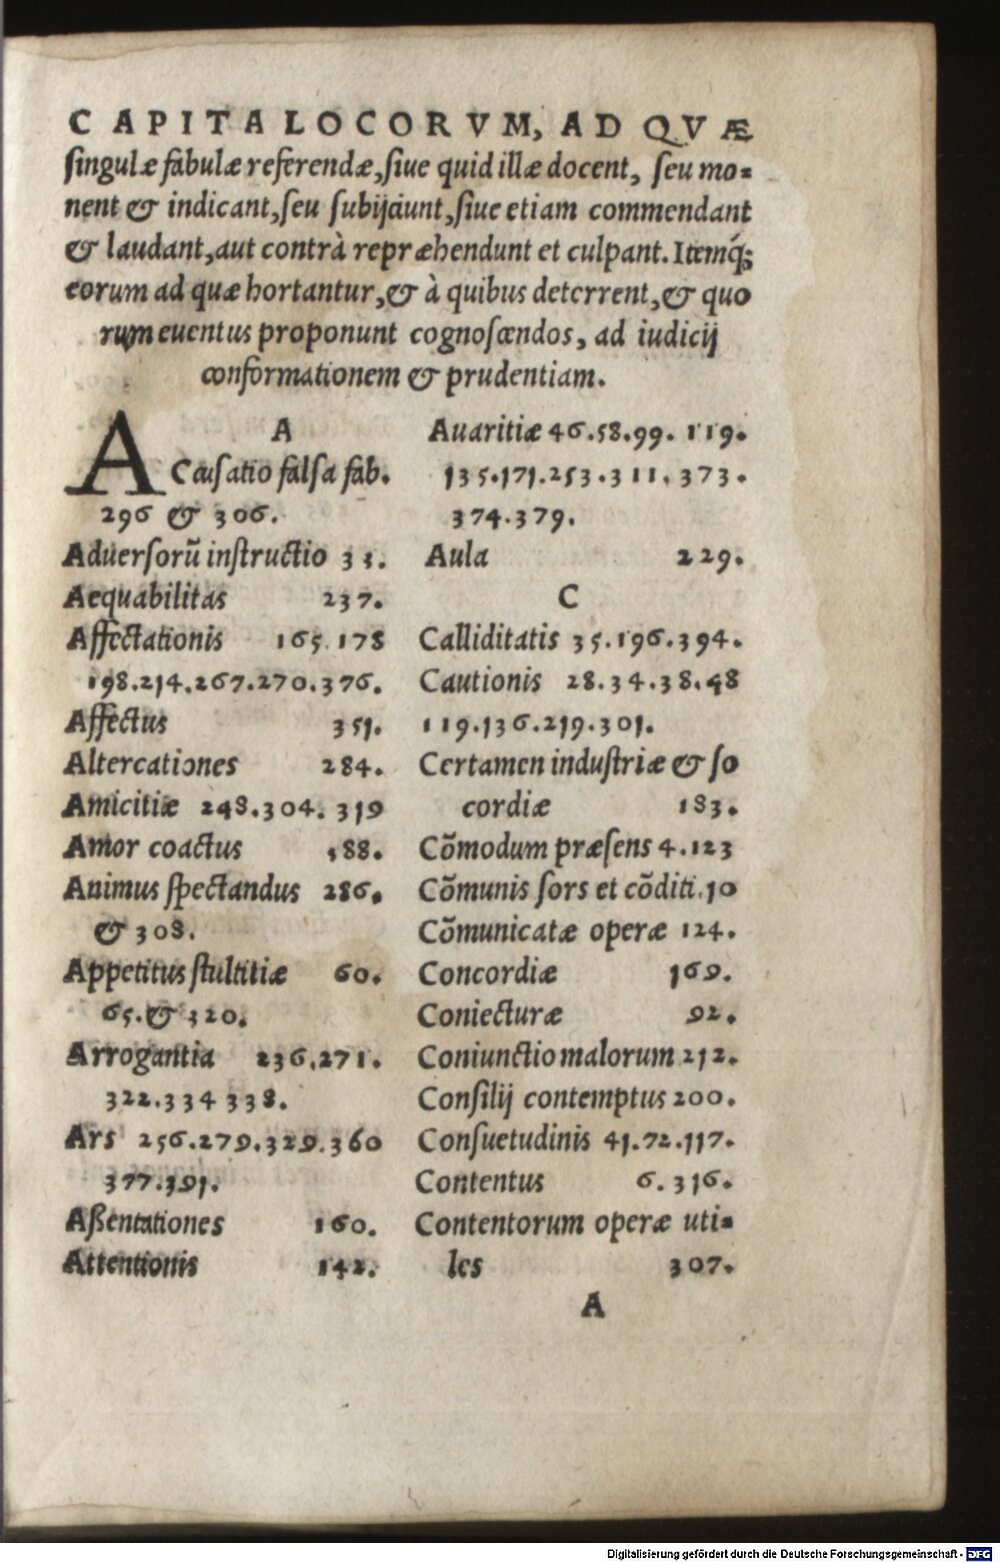 CAPITA LOCORVM, AD QVÆ
ſingulæ fabulæ referendæ, ſiue quid illæ docent, ſeu mo=
nent & indicant, ſeu ſubijciunt, ſiue etiam commendant
& laudant, aut contrà repræhendunt et culpant. Itemq́;
eorum ad quæ hortantur, & à quibus deterrent, & quo
rum euentus proponunt cognoſcendos, ad iudicij
conformationem & prudentiam.
A
ACcuſatio falſa fab.
296 & 306.
Aduerſorũ inſtructio 31.
Aequabilitas 237.
Affectationis 165.178
198.214.267.270.376.
Affectus 351.
Altercationes 284.
Amicitiæ 248.304.319
Amor coactus 188.
Animus ſpectandus 286.
& 308.
Appetitus ſtultitiæ 60.
65.& 320.
Arrogantia 236.271.
322.334 338.
Ars 256.279.329.360
377.391.
Aßentationes 160.
Attentionis 142.
Auaritiæ 46.58.99.119.
135.171.253.311.373.
374.379.
Aula 229.
C
Calliditatis 35.196.394.
Cautionis 28.34.38.48
119.136.219.301.
Certamen induſtriæ & ſo
cordiæ 183.
Cõmodum præſens 4.123
Cõmunis ſors et cõditi.10
Cõmunicatæ operæ 124.
Concordiæ 169.
Coniecturæ 92.
Coniunctio malorum 212.
Conſilij contemptus 200.
Conſuetudinis 41.72.117.
Contentus 6.316.
Contentorum operæ uti=
les 307.
A
Digitalisierung gefördert durch die Deutsche Forschungsgemeinschaft - DFG